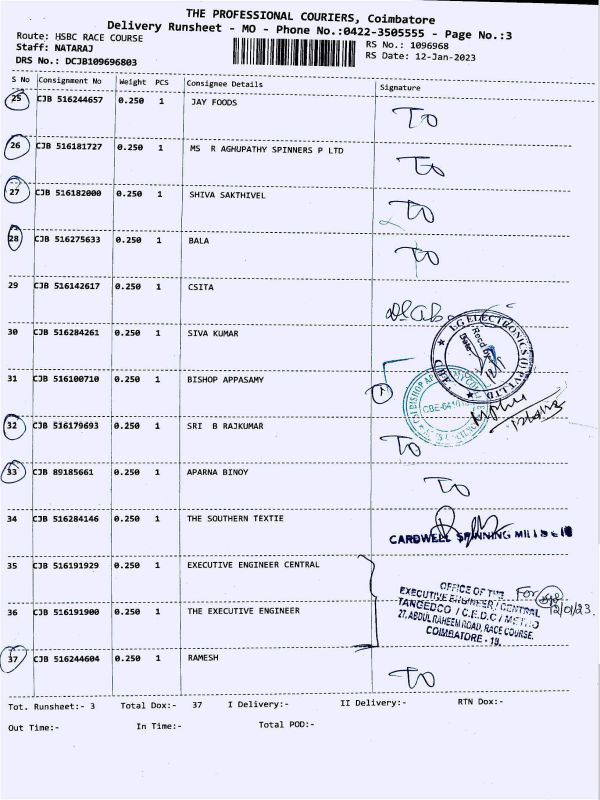 THE PROFESSIONAL COURIERS, Coimbatore
Delivery Runsheet - MO - Phone No.:0422-3505555 - Page No.:3
Route: HSBC RACE COURSE RS No.: 1096968
Staff: NATARAJ RS Date: 12-Jan-2023
DRS No.: DCJB109696803
S No Consignment No Weight PCS Consignee Details Signature
25 CJB 516244657 0.250 1 JAY FOODS TO
26 CJB 516181727 0.250 1 MS R AGHUPATHY SPINNERS P LTD TO
27 CJB 516182000 0.250 1 SHIVA SAKTHIVEL TO
28 CJB 516275633 0.250 1 BALA TO
29 CJB 516142617 0.250 1 CSITA
30 CJB 516284261 0.250 1 SIVA KUMAR
LG ELECTRONICS (I) PVT LTD
CBE
31 CJB 516100710 0.250 1 BISHOP APPASAMY
1
32 CJB 516179693 0.250 1 SRI B RAJKUMAR TO
33 CJB 89185661 0.250 1 APARNA BINOY TO
34 CJB 516284146 0.250 1 THE SOUTHERN TEXTIE
CARDWELL SPINNING MILLS
35 CJB 516191929 0.250 1 EXECUTIVE ENGINEER CENTRAL
OFFICE OF THE For
EXECUTIVE ENGINEER / CENTRAL
36 CJB 516191900 0.250 1 THE EXECUTIVE ENGINEER
TANGEDCO / C.E.D.C / METRO 12/01/23.
27, ABDUL RAHEEM ROAD, RACE COURSE,
COIMBATORE - 18.
37 CJB 516244604 0.250 1 RAMESH TO
Tot. Runsheet:- 3 Total Dox:- 37 I Delivery:- II Delivery:- RTN Dox:-
Out Time:- In Time:- Total POD:-